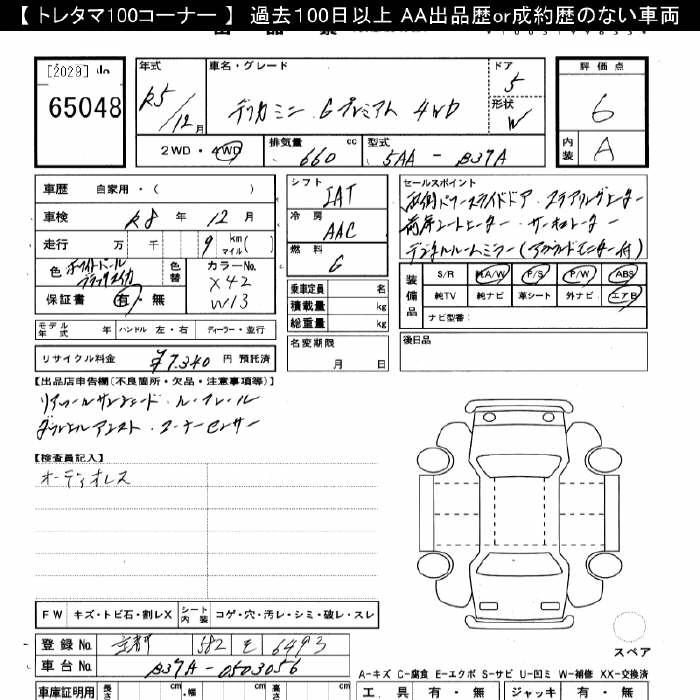 【 トレタマ100コーナー 】 過去100日以上 AA出品歴or成約歴のない車両
[2029]
65048
年式
R5/12月
車名・グレード
デリカミニ Gプレミアム 4WD
ドア
5
形状
W
評価点
6
内装
A
2WD・4WD
排気量 660 cc
型式 5AA - B37A
車歴 自家用・( )
車検 R8 年 12 月
走行 万 千 9 km マイル( )
色 ホワイトパール ブラックマイカ
色替
カラーNo.
X42
W13
保証書 有・無
シフト
IAT
冷房
AAC
燃料
G
乗車定員 名
積載量 kg
総重量 kg
セールスポイント
両側パワースライドドア・ステアリングヒーター
前席シートヒーター・サーキュレーター
デジタルルームミラー(アラウンドモニター付)
装備品
S/R A/W P/S P/W ABS
純TV 純ナビ 革シート 外ナビ エアB
ナビ型番:
モデル年式 年 ハンドル 左・右 ディーラー・並行
リサイクル料金 ¥7,340 円 預託済
名変期限
月 日
後日品
【出品店申告欄(不良箇所・欠品・注意事項等)】
リアコールサンシェード・ルーフレール
コーナーセンサー
【検査員記入】
オーディオレス
FW キズ・トビ石・割レX シート内装 コゲ・穴・汚レ・シミ・破レ・スレ
登録No. 京都 582 モ 6493
車台No. B37A-0503056
スペア
A-キズ C-腐食 E-エクボ S-サビ U-凹ミ W-補修 XX-交換済
車庫証明用 長さ cm ・幅 cm 高さ cm
工具 有・無 ジャッキ 有・無